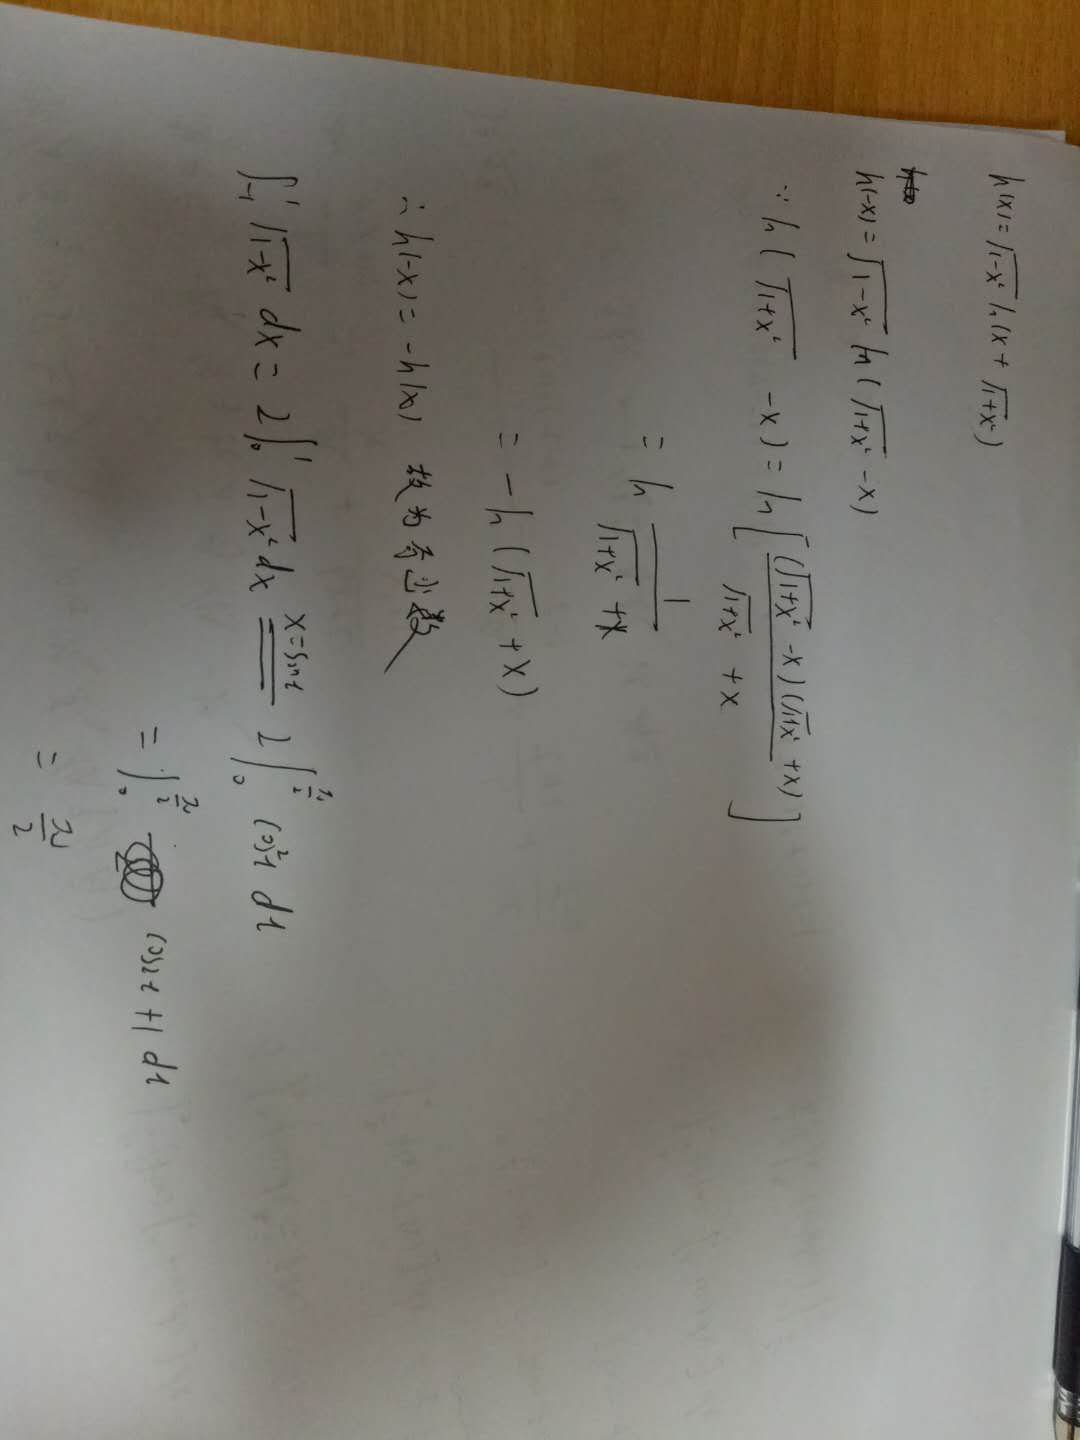 h(x) = √(1-x²) ln(x + √(1+x²))
h(-x) = √(1-x²) ln(√(1+x²) - x)
∵ ln(√(1+x²) - x) = ln[(√(1+x²) - x)(√(1+x²) + x) / (√(1+x²) + x)]
= ln 1/(√(1+x²) + x)
= -ln(√(1+x²) + x)
∴ h(-x) = -h(x) 故为奇函数
∫₋₁¹ √(1-x²) dx = 2∫₀¹ √(1-x²) dx x=sint == 2∫₀^(π/2) cos²t dt
= ∫₀^(π/2) cos2t + 1 dt
= π/2